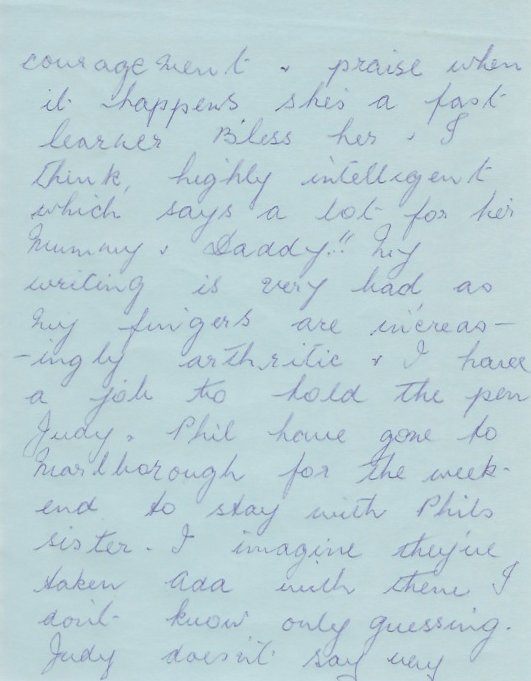 couragement & praise when
it happens she's a fast
learner Bless her & I
think, highly intelligent
which says a lot for her
Mummy & Daddy!! My
writing is very bad as
my fingers are increas-
-ingly arthritic & I have
a job to hold the pen
Judy & Phil have gone to
Marlborough for the week-
end to stay with Phils
sister. I imagine they've
taken Ada with them I
don't know only guessing.
Judy doesn't say very